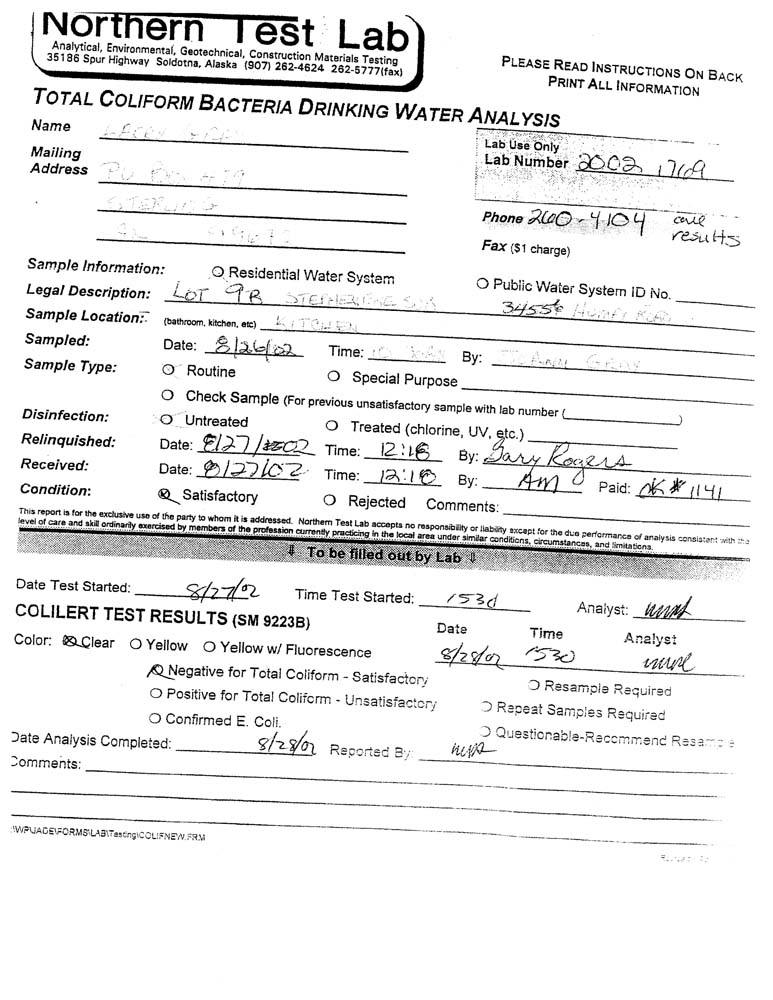 Northern Test Lab
Analytical, Environmental, Geotechnical, Construction Materials Testing
35186 Spur Highway Soldotna, Alaska (907) 262-4624 262-5777(fax)
PLEASE READ INSTRUCTIONS ON BACK
PRINT ALL INFORMATION
TOTAL COLIFORM BACTERIA DRINKING WATER ANALYSIS
Name
Lab Use Only
Lab Number 2002 1769
Mailing
Address PO Box 479
STERLING
Phone 260-4104 call results
Fax ($1 charge)
Sample Information: O Residential Water System O Public Water System ID No.
Legal Description: LOT 9B 34556
Sample Location: (bathroom, kitchen, etc) KITCHEN
Sampled: Date: 8/26/02 Time: By: GRAY
Sample Type: O Routine O Special Purpose
O Check Sample (For previous unsatisfactory sample with lab number ( )
Disinfection: O Untreated O Treated (chlorine, UV, etc.)
Relinquished: Date: 8/27/02 Time: 12:18 By: Gary Rogers
Received: Date: 8/27/02 Time: 12:18 By: AM Paid: CK # 1141
Condition: Satisfactory O Rejected Comments:
This report is for the exclusive use of the party to whom it is addressed. Northern Test Lab accepts no responsibility or liability except for the due performance of analysis consistent with the
level of care and skill ordinarily exercised by members of the profession currently practicing in the local area under similar conditions, circumstances, and limitations.
⇓ To be filled out by Lab ⇓
Date Test Started: 8/27/02 Time Test Started: 1530 Analyst:
COLILERT TEST RESULTS (SM 9223B) Date Time Analyst
Color: Clear O Yellow O Yellow w/ Fluorescence 8/28/02 1530
Negative for Total Coliform - Satisfactory O Resample Required
O Positive for Total Coliform - Unsatisfactory O Repeat Samples Required
O Confirmed E. Coli. O Questionable-Recommend Resample
Date Analysis Completed: 8/28/02 Reported By:
Comments:
:\WP\JADE\FORMS\LAB\Testing\COLIFNEW.FRM